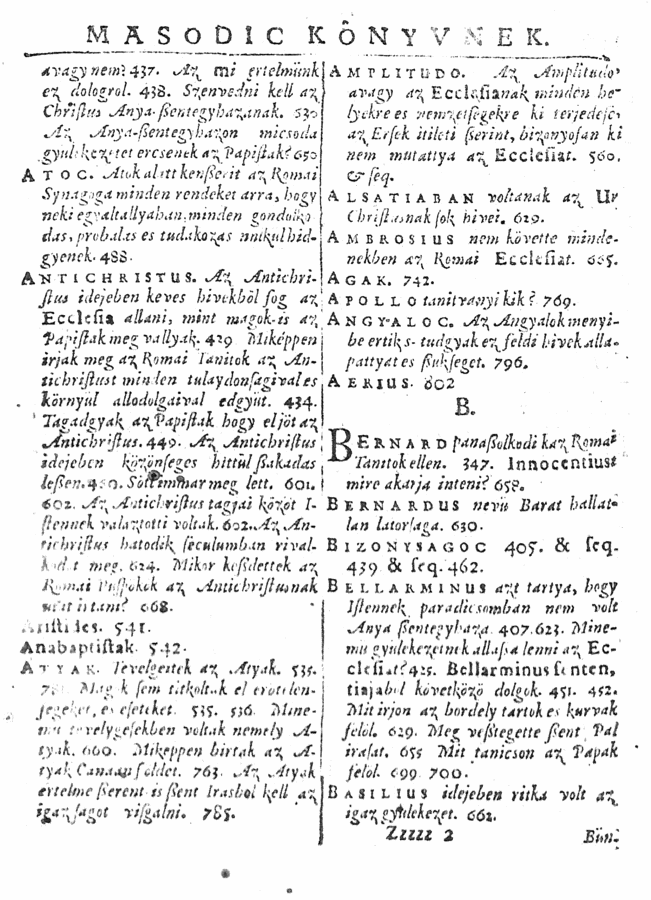 MASODIC KÖNYVNEK.
avagy nem? 437. Az mi ertelmünk
ez dologrol. 438. Szenvedni kell az
Christus Anya-ßentegyhazanak. 530
Az Anya-ßentegyhazon micsoda
gyülekezetet ercsenek az Papistak? 650
ATOC. Atok alatt kenßerit az Romai
Synagoga minden rendeket arra, hogy
neki egyaltallyaban, minden gondolko
das, probalas es tudakozas nnlkül hid-
gyenek. 488.
ANTICHRISTUS. Az Antichri-
stus idejeben keves hivekböl fog az
Ecclesia allani, mint magok-is az
Papistak meg vallyak. 429 Miképpen
irjak meg az Romai Tanitok az An-
tichristust minden tulaydonsagival es
környul allo dolgaival edgyüt. 434.
Tagadgyak az Papistak hogy eljöt az
Antichristus. 449. Az Antichristus
idejeben közönseges hittül ßakadas
leßen. Söt immar meg lett. 601.
602. Az Antichristus tagjai közöt I-
stennek valaztotti voltak. 602. Az An-
tichristus hatodik seculumban rival-
kodot meg. 624. Mikor keßdettek az
Romai Pußpokok az Antichristusnak
668.
Aristides. 541.
Anabaptistak. 542.
ATYAK. Tevelgettek az Atyak. 535.
Magok sem titkoltak el erotelen-
segeket, es eseteket. 535. 536. Mine-
mü tevelygesekben voltak nemely A-
tyak. 660. Miképpen birtak az A-
tyak Canaan földet. 763. Az Atyak
ertelme ßerent is ßent Irasbol kell az
igazsagot visgalni. 785.
AMPLITUDO. Az Amplitudo
avagy az Ecclesianak minden he-
lyekre es nemzetsegekre ki terjedese,
az Ersek itileti ßerint, bizonyosan ki
nem mutattya az Ecclesiat. 560.
& seq.
ALSATIABAN voltanak az Ur
Christusnak sok hivei. 629.
AMBROSIUS nem követte minde-
nekben az Romai Ecclesiat. 665.
AGAK. 742.
APOLLO tanitvanyi kik? 769.
ANGYALOC. Az Angyalok menyi-
be ertik s- tudgyak ez földi hivek alla-
pattyat es ßukseget. 796.
AERIUS. 802
B.
BERNARD panaßolkodik az Romai
Tanitok ellen. 347. Innocentiust
mire akarja inteni? 658.
BERNARDUS nevü Barat hallat-
lan latorsaga. 630.
BIZONYSAGOC 405. & seq.
439 & seq. 462.
BELLARMINUS azt tartya, hogy
Istennek paradicsomban nem volt
Anya ßentegyhaza. 407. 623. Mine-
mü gyulekezetnek allassa lenni az Ec-
clesiat? 425. Bellarminus senten,
tiajabol következö dolgok. 451. 452.
Mit irjon az bordely tartok es kurvak
felöl. 629. Meg veßtegette ßent Pal
irasat. 655 Mit tanicson az Papak
felöl. 699 700.
BASILIUS idejeben ritka volt az
igaz gyülekezet. 662.
Zzzzz 2
Bün-